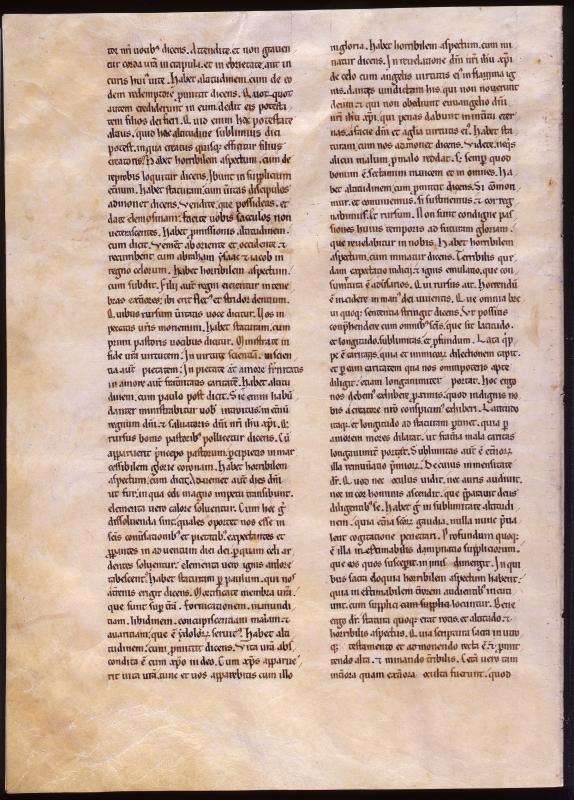 tor nr̄i uocib; dicens. Attendite. et non grauen
tur corda ur̄a in crapula. et in ebrietate. aut in
curis hui' uite. Habet altitudinem. cum de eo
dem redemptore p̄mittit dicens. Quot quot
autem crediderunt in eum. dedit eis potesta
tem filios dei fieri. Quid enim hac potestate
altius. quid hac altitudine sublimius dici
potest. in qua creatus quisq; efficitur filius
creatoris. Habet horribilem aspectum. cum de
reprobis loquitur dicens. Ibunt in supplicium
et̄num. Habet staturam. cum ueritas discipulos
admonet dicens. Vendite que possidetis. et
date elemosinam. facite uobis sacculos non
ueterescentes. Habet p̄missionis altitudinem.
cum dicit. Venient ab oriente et occidente. et
recumbent cum abraham ysaac et iacob in
regno celorum. Habet horribilem aspectum.
cum subdit. Filii aut̄ regni eicientur in tene
bras ext̄iores. ibi erit flet' et stridor dentium.
Quibus rursum ueritas uoce dicitur. Vos in
peccatis ur̄is moriemini. Habet staturam. cum
primi pastoris uocibus dicitur. Ministrate in
fide ur̄a uirtutem. In uirtute scientiā. in scien
tia aut̄ pietatem. In pietate aut̄ amorem frat̄nitatis
in amore aut̄ frat̄nitatis caritatē. Habet altitu
dinem. cum paulo post dicit. Sic enim habun
danter ministrabitur uob' introitus in et̄nū
regnum dn̄i. et saluatoris dn̄i nr̄i ihu xp̄i. Qui
rursus bonis pastorib; pollicetur dicens. Cū
apparuerit p̄nceps pastorum. p̄cipietis in mar
cessibilem glorie coronam. Habet horribilem
aspectum. cum dicit. Adueniet aut̄ dies dn̄i
ut fur. in qua celi magno impetu transibunt.
elementa uero calore soluentur. Cum hec g̊
dissoluenda sint. quales oportet nos esse in
sc̄is conuersationib; et pietatib; expectantes et
p̄perantes in aduentum diei dei. p̄ quam celi ar
dentes soluentur. elementa uero ignis ardore
tabescent. Habet staturam p̄ paulum. qui nos
admonens erigit dicens. Mortificate membra ur̄a.
que sunt sup̄ t̄ram. fornicationem. immundi
tiam. libidinem. concupiscentiam malam. et
auaritiam. que ē ydolor̄ seruit'. Habet alti
tudinem. cum p̄mittit dicens. Vita ur̄a abs
condita ē cum xp̄o in deo. Cum xp̄s apparue
rit uita ur̄a. tunc et uos apparebitis cum illo
in gloria. Habet horribilem aspectum. cum mi
natur dicens. In reuelatione dn̄i nr̄i ihu xp̄i.
de celo cum angelis uirtutis ei' in flamma ig
nis. dantes uindictam his. qui non nouerunt
deum. et qui non obediunt euuangelio dn̄i
nr̄i ihu xp̄i. qui penas dabunt in int̄itu eter
nas. a facie dn̄i et a gl̄ia uirtutis ei'. Habet sta
turam. cum nos admonet dicens. Videte. neq̄s
alicui malum. p̄ malo reddat. s; semp̄ quod
bonum ē sectamini inuicem et in omnes. Ha
bet altitudinem. cum p̄mittit dicens. Si cōmori
mur. et conuiuemus. si sustinemus. et con reg
nabimus. Et rursum. Non sunt condigne pas
siones huius temporis ad futuram gloriam.
que reuelabitur in nobis. Habet horribilem
aspectum. cum minatur dicens. Terribilis que
dam expectatio iudicii. et ignis emulatio. que con
sumtura ē aduersarios. Qui rursus ait. Horrendū
ē incidere in man' dei uiuentis. Que omnia bre
ui quoq; sententia stringit dicens. Vt possitis
comp̄hendere cum omnib; sc̄is. que sit latitudo.
et longitudo. sublimitas. et p̄fundum. Lata q̄p
pe ē caritas. quia et inimicor̄ dilectionem capit.
et p̄ eam caritatem qua nos omnipotens ap̄te
diligit. etiam longanimiter portat. Hoc ergo
nos debem' exhibere p̄ximis. quod indignis no
bis a creatore nr̄o conspicim' exhiberi. Latitudo
itaq; et longitudo ad staturam p̄tinet. quia p̄
amorem mores dilatat. ut frat̄na mala caritas
longanimit̄ portet. Sublimitas aut̄ ē et̄nor̄
illa remuneratio p̄mior̄. De cuius inmensitate
dr̄. Quod nec oculus uidit. nec auris audiuit.
nec in cor hominis ascendit. que p̄parauit deus
diligentib; se. Habet g̊ in sublimitate altitudi
nem. quia et̄na sc̄or̄ gaudia. nulla nunc p̄ua
lent cogitatione penetrari. Profundum quoq;
ē illa inestimabilis dampnatio suppliciorum.
que eos quos suscepit in imis dimergit. In qui
bus sacra eloquia horribilem aspectum habent.
quia inestimabilem t̄rorem audientib; incuti
unt. cum supplicia loquuntur. Bene
ergo dr̄. statura quoq; erat rotis. et altitudo. et
horribilis aspectus. Quia scriptura sacra in utro
q; testamento et admonendo recta ē. et p̄mit
tendo alta. et minando t̄ribilis. Cet̄a uero tam
int̄iora quam ext̄iora occulta fuerunt. quod